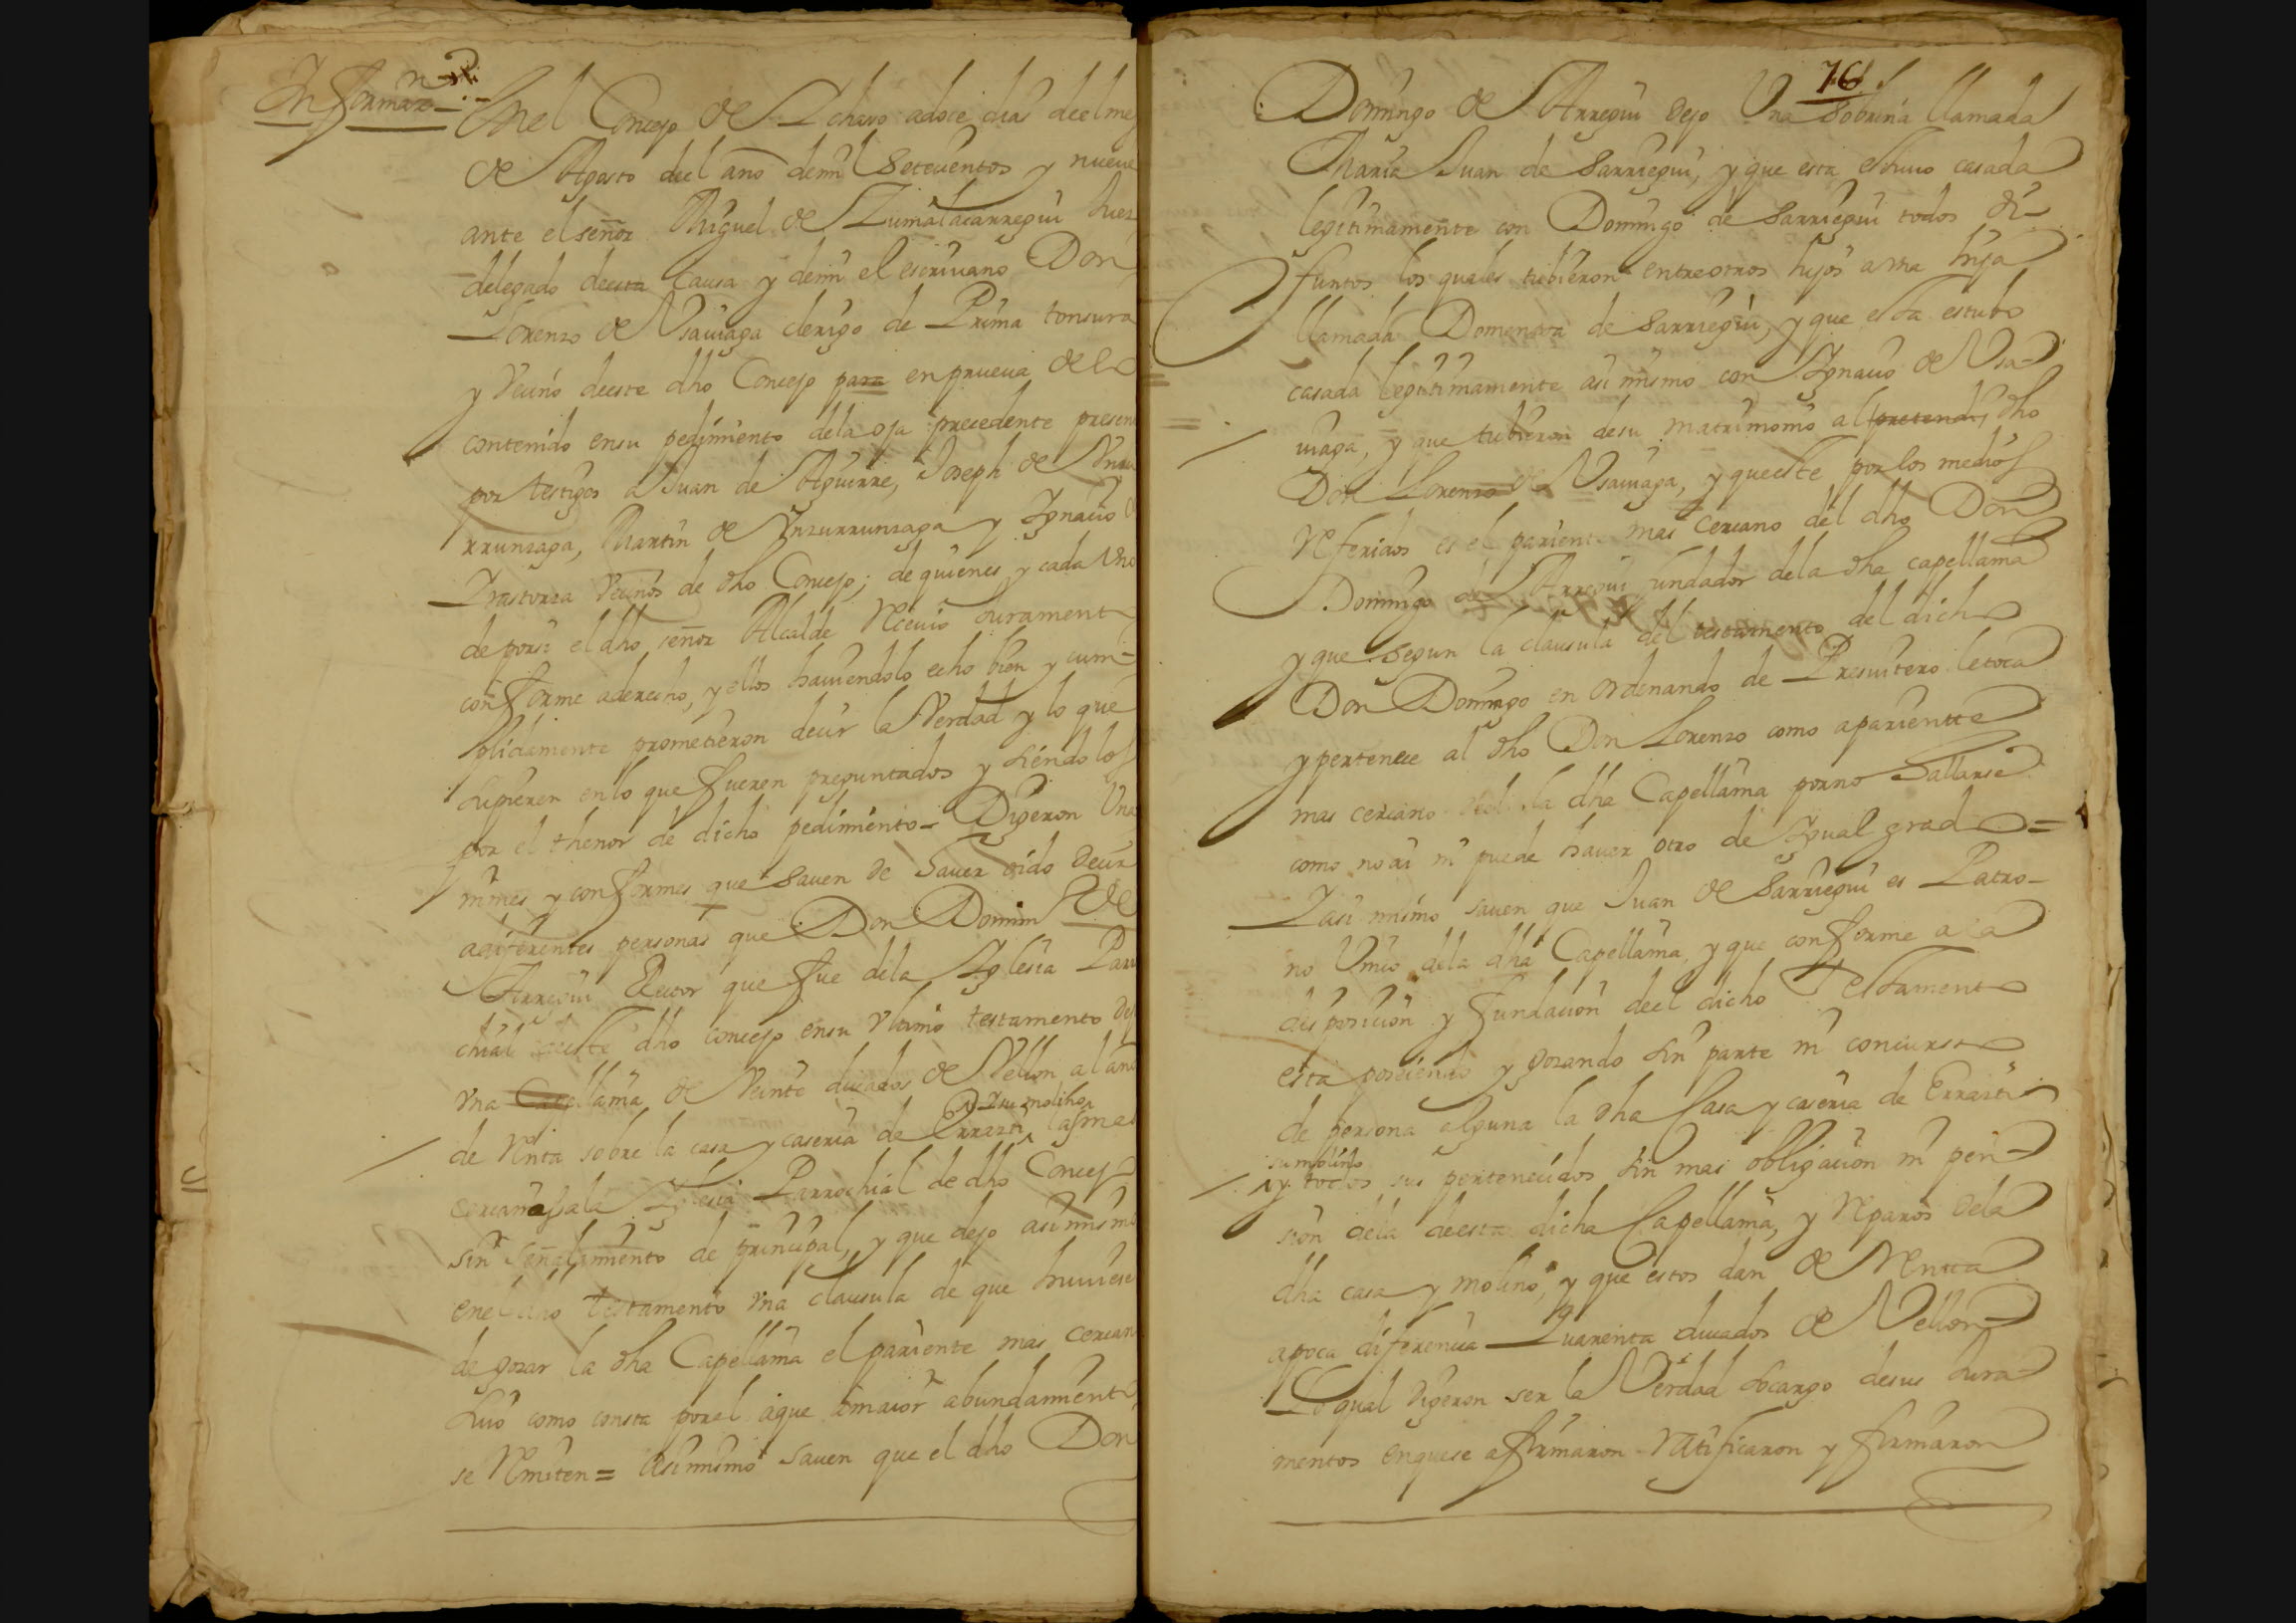 Informazon
En el Concejo de Ichaso adoce dias deelmes
de Agosto deel año demil Setecientos y nueve
ante elseñor Miguel de Zumalacarregui Juez
delegado deesta Causa y demi el escriuano Don
Lorenzo de Vsauiaga clerigo de Prima tonsura
y Vecino deeste dho Concejo para enprueua de lo
contenido ensu pedimiento dela oja precedente presento
por testigos a Juan de Aguirre, Joseph de
rrunzaga, Martin de Ynzurrunzaga y Ignacio de
Vecinos de dho Concejo; de quienes y cada vno
de porsi el dho señor Alcalde Receuio Jurament
conforme aderecho, y ellos hauiendolo echo bien y cum-
plidamente prometieron decir la Verdad y lo que
supieren enlo que fueren preguntados y siendolos
por el thenor de dicho pedimiento Digeron Vna
nimes y conformes que Sauen de hauer oido decir
adiferentes personas que Don Domingo de
Arregui Rector que fue dela Yglesia Parro
chial deeste dho concejo ensu Vltimo testamento dejo
vna Capellania de Veinte ducados de Vellon al año
de Renta sobre la casa y caseria de Errazti, y su molino las mas
cercanas ala Yglesia Parrochial de dho Concejo
sin señalamiento de principal, y que dejo asimismo
enel dho testamento vna clausula de que huuiese
de gozar la dha Capellania el pariente mas cercano
suio como consta porel aque amaior abundamient
se Remiten = Asimismo sauen que el dho Don
76
Domingo de Arregui dejo Vna Sobrina llamada
Maria Juan de Sarriegui, y que esta estuuo casada
legitimamente con Domingo de Sarriegui todos di-
funtos los quales tubieron entreotros hijos avna hija
llamada Domenica de Sarriegui, y que esta estubo
casada legitimamente asi mismo con Ygnacio de Vsa-
uiaga, y que tubieron desu matrimonio al pretendi dho
Don Lorenzo de Vsauiaga, y queeste por los medios
Referidos es el pariente mas cercano del dho Don
Domingo de Arregui fundador dela dha capellania
y que segun la clausula del testamento del dicho
Don Domingo en ordenando de Presuitero letoca
y pertenece al dho Don Lorenzo como apariente
mas cercano la dha Capellania porno hallarse
como no ai ni puede hauer otro de Igual grado =
Yasi mismo sauen que Juan de Sarriegui es Patro-
no Vnico dela dha Capellania, y que conforme ala
disposicion y fundacion deel dicho Testamento
esta poseiendo y gozando sin parte ni concurso
de persona alguna la dha Casa y caseria de Errazti
su molino
y todos sus pertenecidos sin mas obligacion ni pen-
sion dela deesta dicha Capellania, y Reparos dela
dha casa y molino, y que estos dan de Renta
apoca diferencia Quarenta ducados de Vellon
Loqual digeron ser la Verdad socargo desus Jura-
mentos enquese afirmaron Ratificaron y firmaron